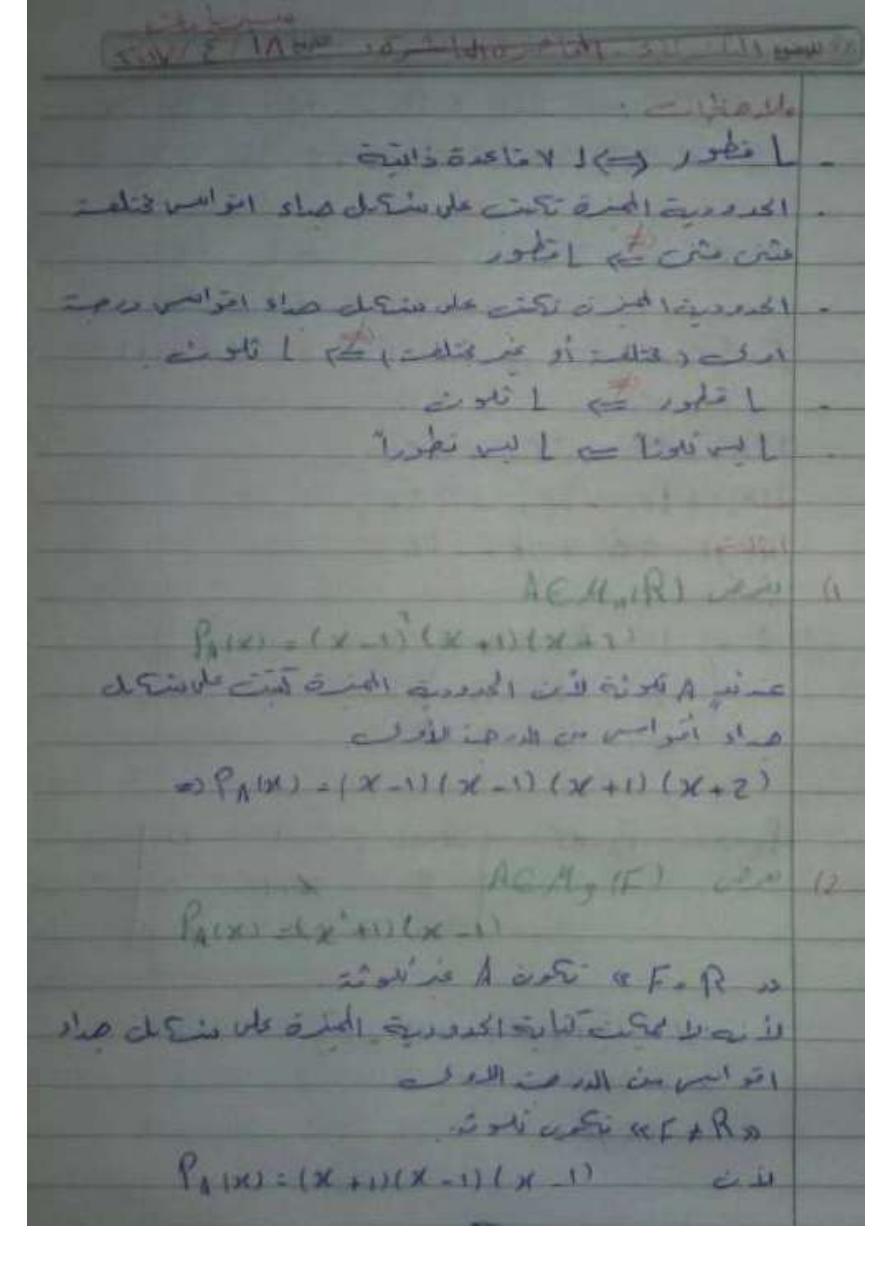 ملاحظات :
- L قطور ⇔ L لا قاعدة ذاتية
- الحدودية المميزة تكتب على شكل جداء اقواس مختلفة
مثنى مثنى ⇐ L قطور
- الحدودية المميزة تكتب على شكل جداء اقواس درجة
اولى (مختلفة أو غير مختلفة) ⇐ L ثلوث
- L قطور ⇐ L ثلوث
- L ليس ثلوثاً ⇐ L ليس قطوراً
امثلة:
(1 بفرض A∈M_n(R)
P_A(x) = (x-1)²(x+1)(x+2)
عندئذٍ A ثلوثة لأن الحدودية المميزة كتبت على شكل
جداء أقواس من الدرجة الأولى
⇒ P_A(x) = (x-1)(x-1)(x+1)(x+2)
(2 بفرض A∈M_3(F)
P_A(x) = (x²+1)(x-1)
« F = R » تكون A غير ثلوثة
لأنه لا يمكن كتابة الحدودية المميزة على شكل جداء
اقواس من الدرجة الاولى
« F ≠ R » تكون ثلوثة.
لأن P_A(x) = (x+1)(x-1)(x-1)